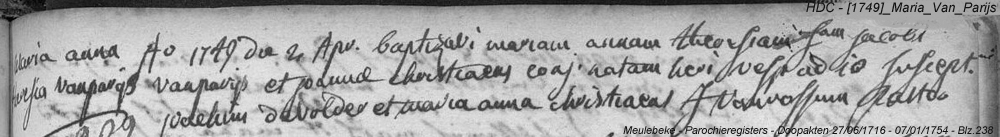 HDC - [1749]_Maria_Van_Parijs
Maria anna Ao 1749 die 2 Apr. baptizavi mariam annam theresiam fam jacobi
theresia vanparijs vanparijs et joannae christiaens conj. natam heri vesp. ad 10 suscept.
joachim devolder et maria anna christiaens J vanrossum Pastor
Meulebeke - Parochieregisters - Doopakten 27/06/1716 - 07/01/1754 - Blz.238